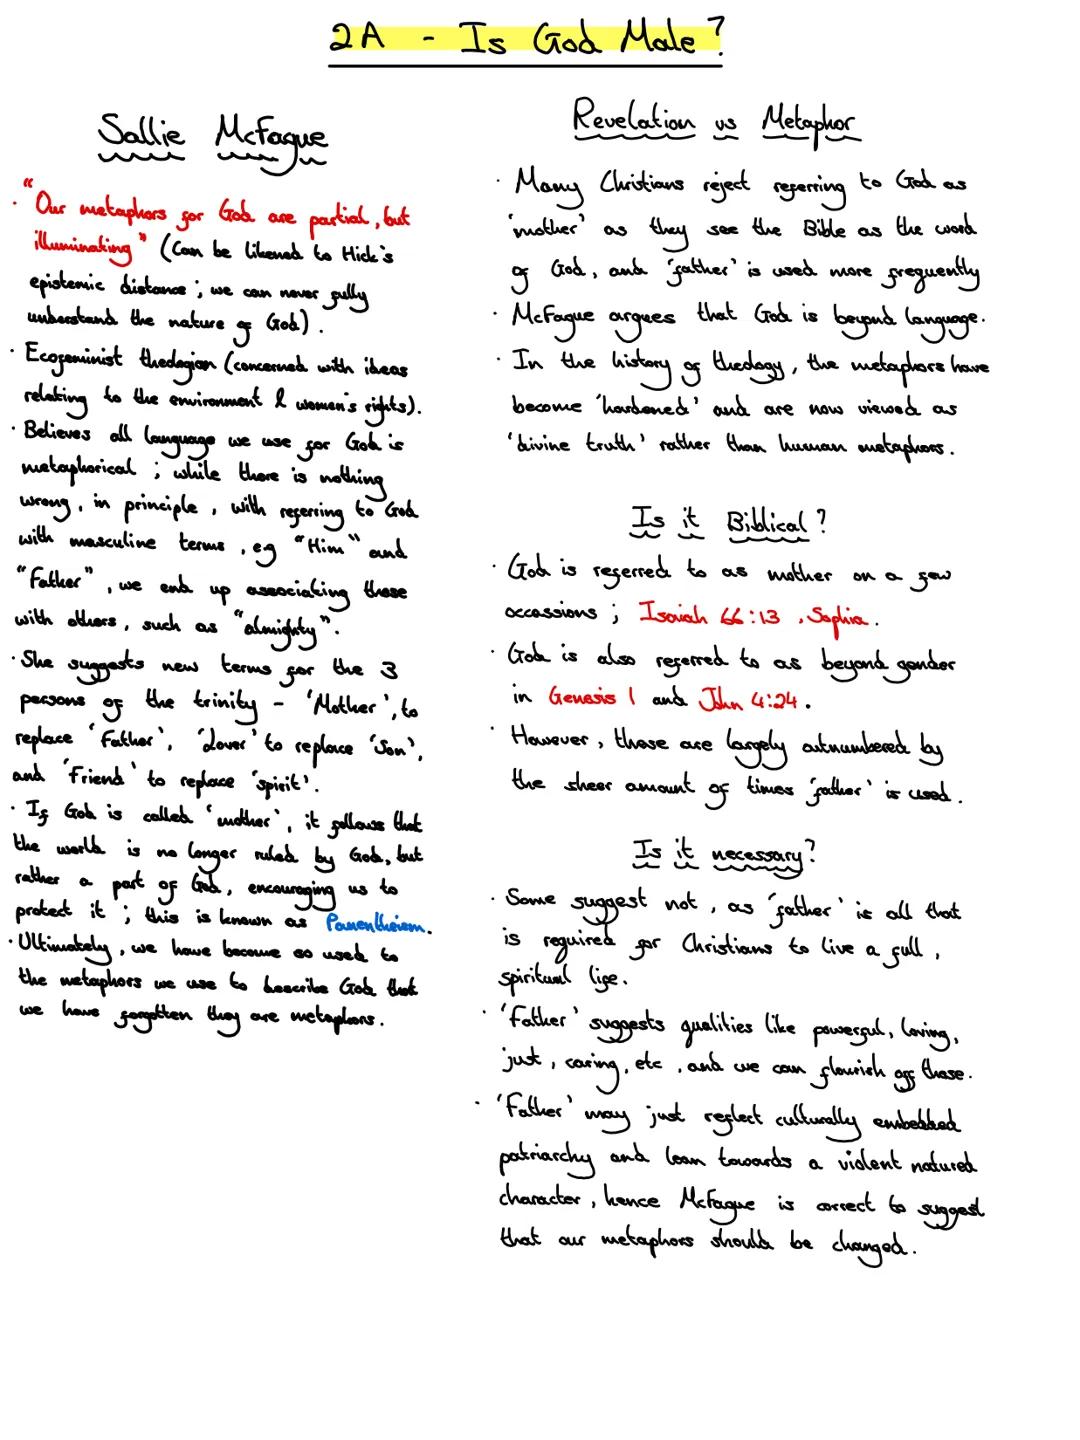 2A - Is God Male?
Sallie McFague
· "Our metaphors for God are partial, but
illuminating" (Can be likened to Hick's
epistemic distance; we can never fully
understand the nature of God).
· Ecofeminist theologian (concerned with ideas
relating to the environment & women's rights).
· Believes all language we use for God is
metaphorical; while there is nothing
wrong, in principle, with referring to God
with masculine terms, eg "Him" and
"Father", we end up associating these
with others, such as "almighty".
· She suggests new terms for the 3
persons of the trinity - 'Mother', to
replace 'Father', 'Lover' to replace 'Son',
and 'Friend' to replace 'spirit'.
· If God is called 'mother', it follows that
the world is no longer ruled by God, but
rather a part of God, encouraging us to
protect it; this is known as Panentheism.
· Ultimately, we have become so used to
the metaphors we use to describe God that
we have forgotten they are metaphors.
Revelation vs Metaphor
· Many Christians reject referring to God as
'mother' as they see the Bible as the word
of God, and 'father' is used more frequently
· McFague argues that God is beyond language.
· In the history of theology, the metaphors have
become 'hardened' and are now viewed as
'divine truth' rather than human metaphors.
Is it Biblical?
· God is referred to as mother on a few
occassions; Isaiah 66:13, Sophia.
· God is also referred to as beyond gender
in Genesis 1 and John 4:24.
· However, these are largely outnumbered by
the sheer amount of times 'father' is used.
Is it necessary?
· Some suggest not, as 'father' is all that
is required for Christians to live a full,
spiritual life.
· 'Father' suggests qualities like powerful, loving,
just, caring, etc, and we can flourish off these.
· 'Father' may just reflect culturally embedded
patriarchy and lean towards a violent natured
character, hence McFague is correct to suggest
that our metaphors should be changed.